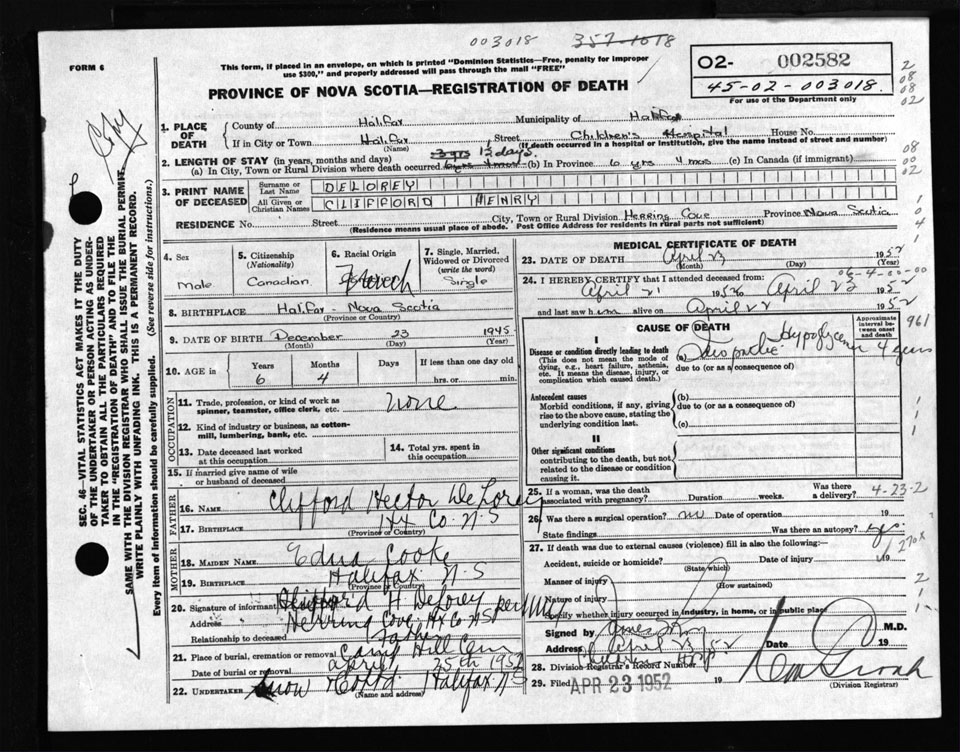 003018 357-1018
FORM 6
This form, if placed in an envelope, on which is printed "Dominion Statistics—Free, penalty for improper
use $300," and properly addressed will pass through the mail "FREE"
PROVINCE OF NOVA SCOTIA—REGISTRATION OF DEATH
02- 002582
45-02-003018.
For use of the Department only
2
08
02
Copy
1. PLACE OF DEATH County of Halifax Municipality of Halifax
If in City or Town Halifax Street Children's Hospital House No.
(Name) (If death occurred in a hospital or institution, give the name instead of street and number)
2. LENGTH OF STAY (in years, months and days) 3 yrs 1½ days.
(a) In City, Town or Rural Division where death occurred 6 yrs 4 mos (b) In Province 6 yrs 4 mos (c) In Canada (if immigrant)
08
00
02
3. PRINT NAME OF DECEASED Surname or Last Name DELOREY
All Given or Christian Names CLIFFORD HENRY
RESIDENCE No. Street City, Town or Rural Division Herring Cove Province Nova Scotia
(Residence means usual place of abode. Post Office Address for residents in rural parts not sufficient)
4. Sex
Male
5. Citizenship
(Nationality)
Canadian
6. Racial Origin
French
7. Single, Married,
Widowed or Divorced
(write the word)
Single
8. BIRTHPLACE Halifax - Nova Scotia
(Province or Country)
9. DATE OF BIRTH December 23 1945
(Month) (Day) (Year)
10. AGE in Years Months Days If less than one day old
6 4 hrs. or min.
OCCUPATION
11. Trade, profession, or kind of work as
spinner, teamster, office clerk, etc. none
12. Kind of industry or business, as cotton-
mill, lumbering, bank, etc.
13. Date deceased last worked
at this occupation
14. Total yrs. spent in
this occupation
15. If married give name of wife
or husband of deceased
FATHER
16. NAME Clifford Hector DeLorey
17. BIRTHPLACE Hx Co. N.S
(Province or Country)
MOTHER
18. MAIDEN NAME Edna Cooke
19. BIRTHPLACE Halifax N-S
(Province or Country)
20. Signature of informant Clifford H DeLorey per
Address Herring Cove Hx Co. NS
Relationship to deceased father
21. Place of burial, cremation or removal Camp Hill Cem
Date of burial or removal April 25th 1952
22. UNDERTAKER Snow Halifax N-S
(Name and address)
MEDICAL CERTIFICATE OF DEATH
23. DATE OF DEATH April 23 1952
(Month) (Day) (Year)
06-4-00-00
24. I HEREBY CERTIFY that I attended deceased from:
April 21 1952 to April 23 1952
and last saw him alive on April 2 1952
CAUSE OF DEATH
Approximate
interval be-
tween onset
and death
961
I
Disease or condition directly leading to death
(This does not mean the mode of
dying, e.g., heart failure, asthenia,
etc. It means the disease, injury, or
complication which caused death.)
(a) Idiopathic Hypoglycemia 4 years
due to (or as a consequence of)
Antecedent causes
Morbid conditions, if any, giving
rise to the above cause, stating the
underlying condition last.
(b)
due to (or as a consequence of)
(c)
II
Other significant conditions
contributing to the death, but not
related to the disease or condition
causing it.
25. If a woman, was the death
associated with pregnancy? Duration weeks. Was there
a delivery? 4-23-2
26. Was there a surgical operation? no Date of operation
State findings Was there an autopsy? yes
27. If death was due to external causes (violence) fill in also the following:—
Accident, suicide or homicide? Date of injury 19
(State which)
270x
Manner of injury
(How sustained)
Nature of injury
Specify whether injury occurred in industry, in home, or in public place
Signed by M.D.
Address Date 19
April 23 52
28. Division Registrar's Record Number
29. Filed APR 23 1952 19
(Division Registrar)
SEC. 46—VITAL STATISTICS ACT MAKES IT THE DUTY
OF THE UNDERTAKER OR PERSON ACTING AS UNDER-
TAKER TO OBTAIN ALL THE PARTICULARS REQUIRED
IN THE "REGISTRATION OF DEATH" AND TO FILE THE
SAME WITH THE DIVISION REGISTRAR WHO SHALL ISSUE THE BURIAL PERMIT.
WRITE PLAINLY WITH UNFADING INK. THIS IS A PERMANENT RECORD.
Every item of information should be carefully supplied. (See reverse side for instructions.)